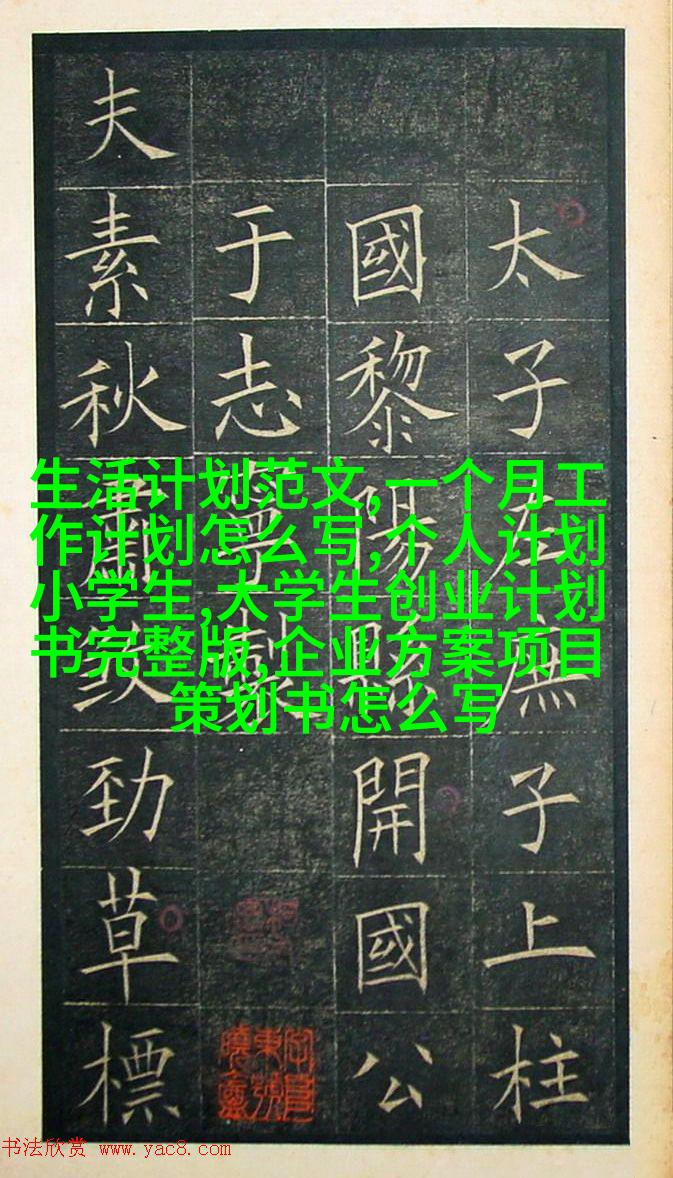 太子左庶子上柱
國黎陽縣開國公
于志寧製
夫素秋肅勁草標
生活计划范文,一个月工
作计划怎么写,个人计划
小学生,大学生创业计划
书完整版,企业方案项目
策划书怎么写
书法欣赏 www.yac8.com